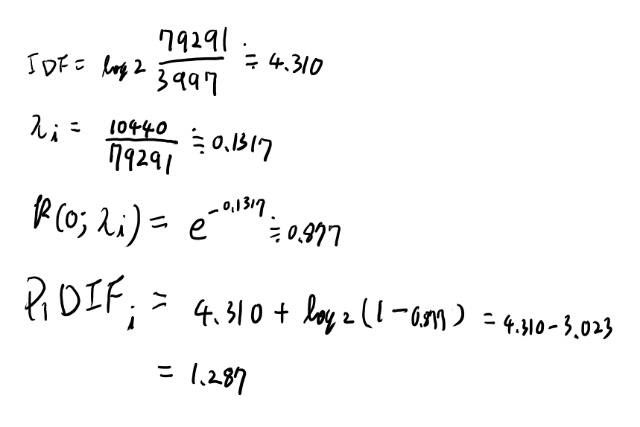 IDF = log2 79291/3997 ≒ 4.310
λi = 10440/79291 ≒ 0.1317
P(0; λi) = e^-0.1317 ≒ 0.877
RIDIFi = 4.310 + log2(1-0.877) = 4.310-3.023
= 1.287